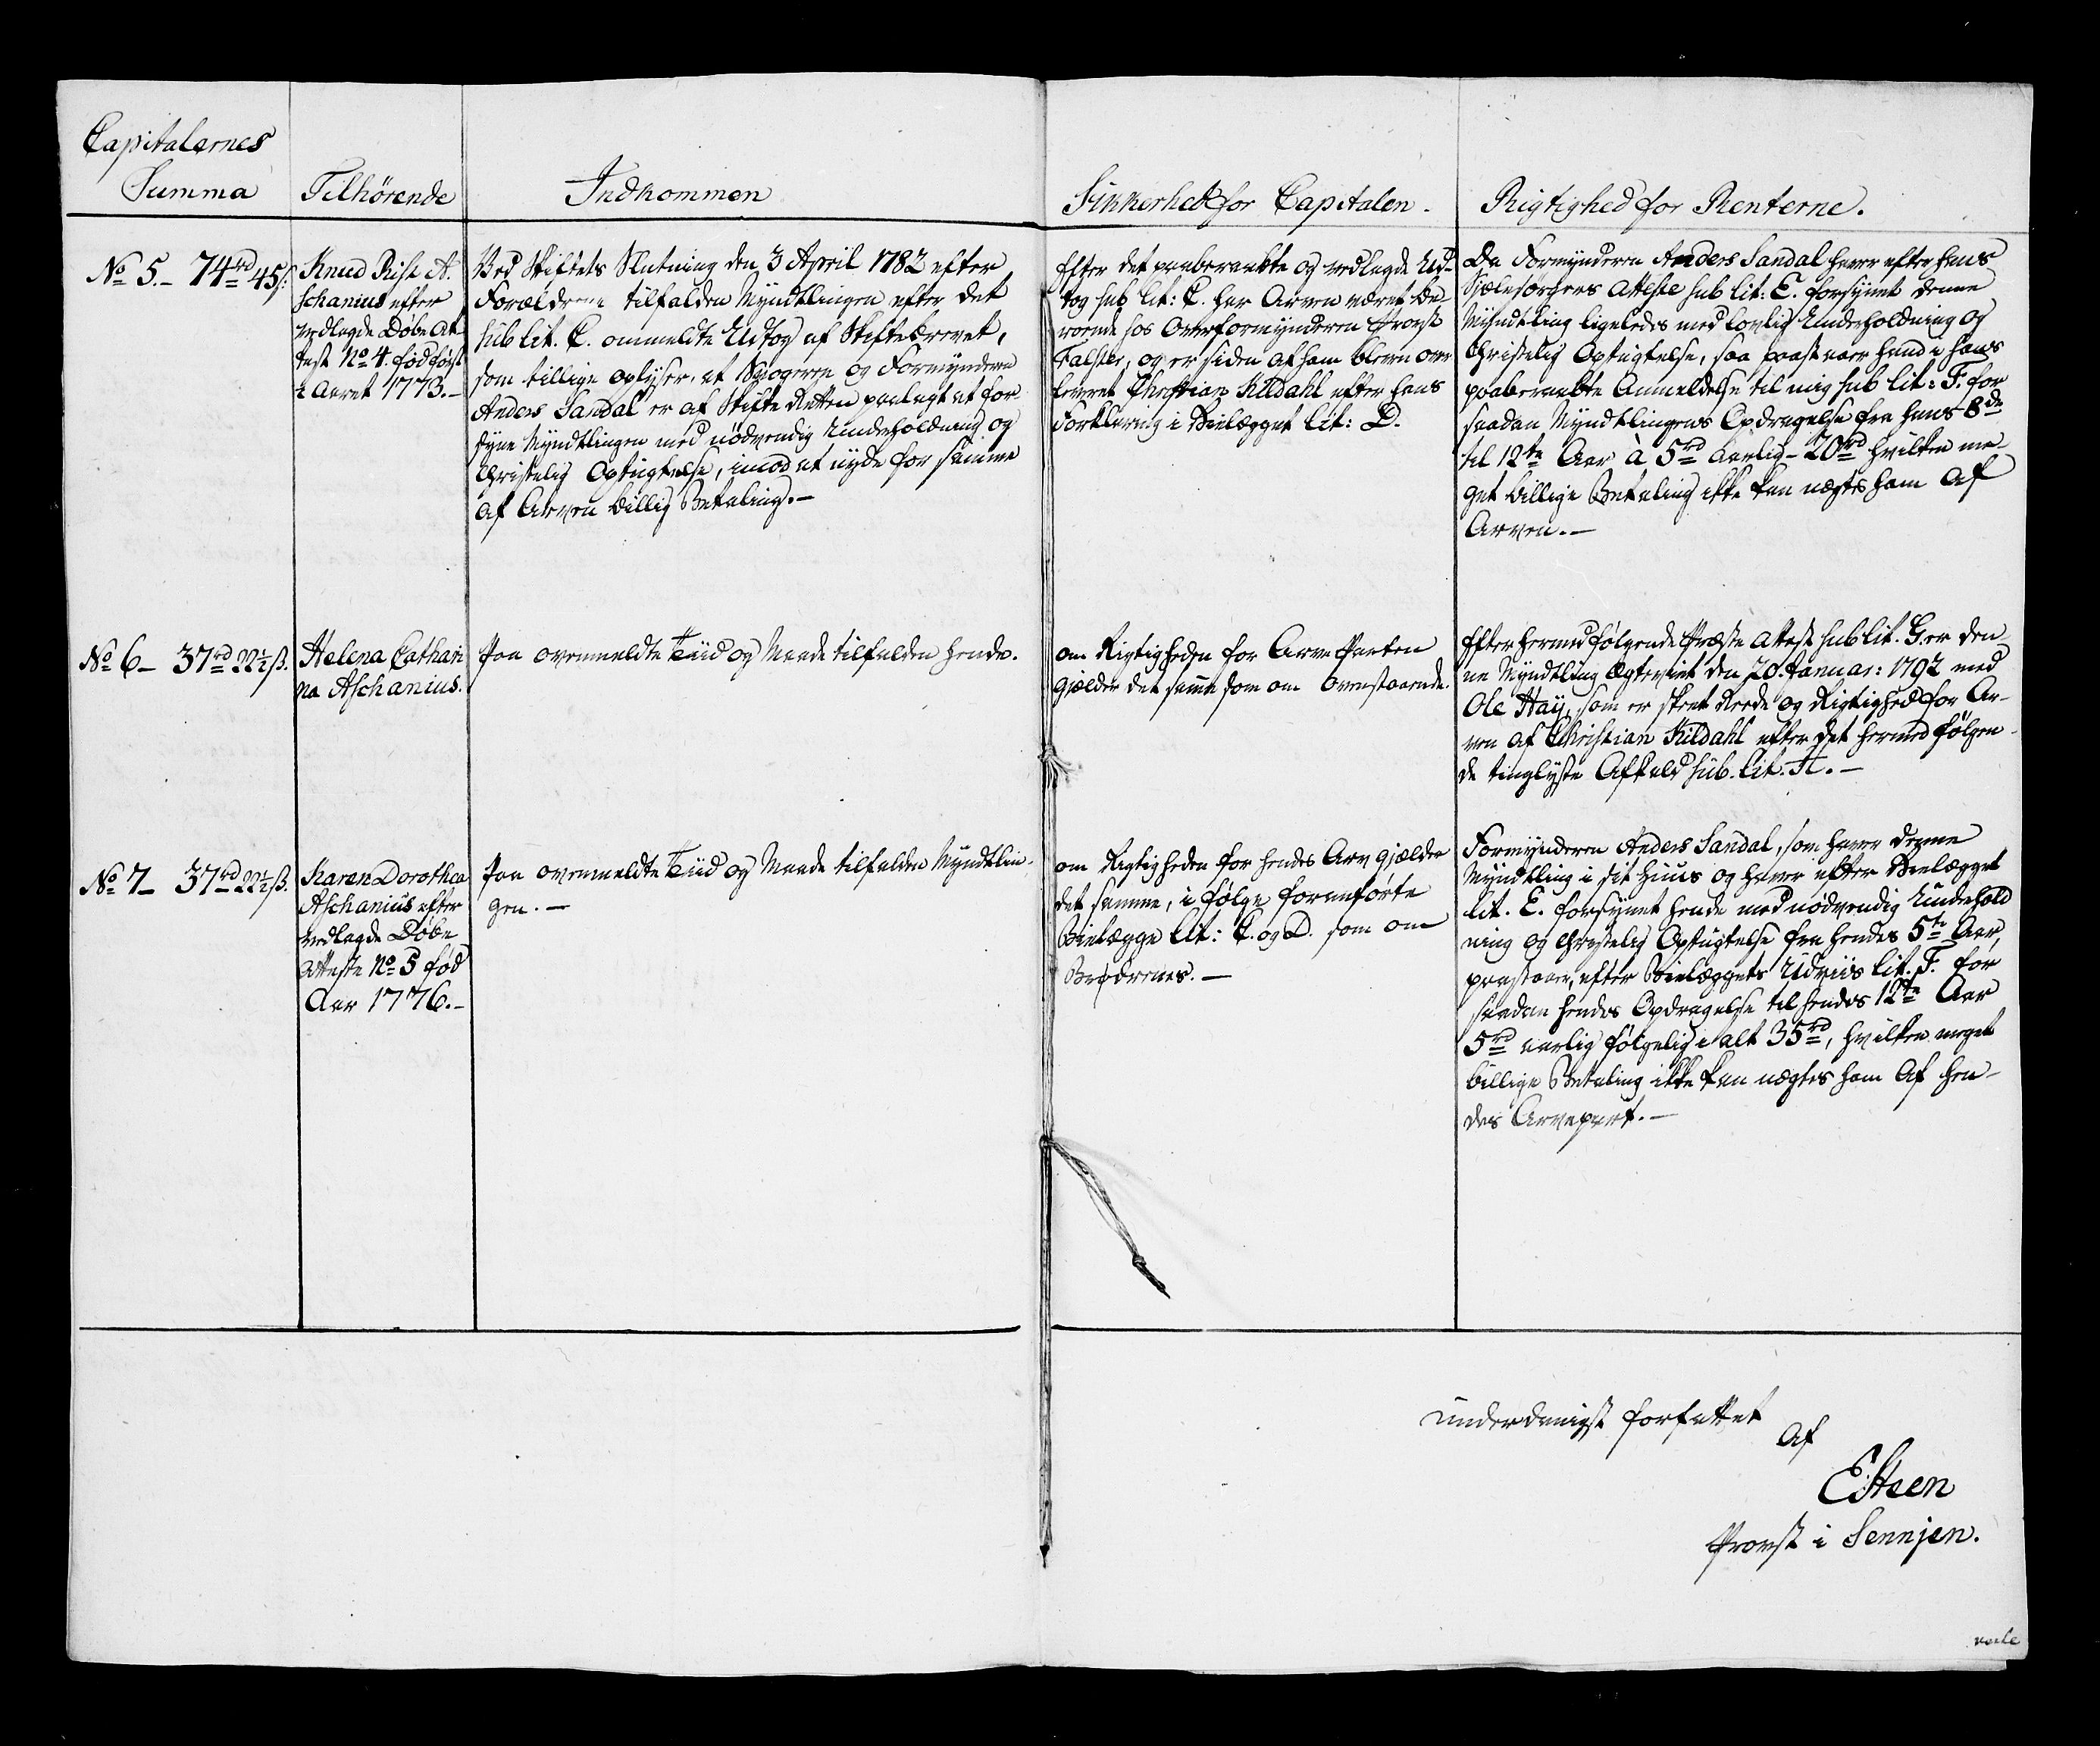 Capitalernes
Summa
Tilhörende
Indkommen
Sikkerhed for Capitalen.
Rigtighed for Renterne.
No 5.- 74rd 45ß:
Knud Rist A-
schanius efter
vedlagde Døbe At-
test No 4. fød först
i Aaret 1773.-
Ved Skiftets Slutning den 3 April 1782 efter
Forældrene tilfalden Myndtlingen efter det
sub lit. C. ommeldte Udtog af Skiftebrevet,
som tillige oplyser, at Svogeren og Formynderen
Anders Sandal er af Skifte Retten paalagt at for-
syne Myndtlingen med nødvendig Underholdning og
Christelig Optugtelse, imod at nyde for samme
af Arven billig Betaling.-
Efter det paaberaabte og vedlagde Ud-
tog sub lit: C. har Arven været be-
roende hos Overformynderen Provst
Falster, og er siden af ham bleven over-
leveret Christian Kildahl efter hans
Forklaring i Bielagget lit: D.
Da Formynderen Anders Sandal haver efter hans
Siælesørgeres Atteste sub lit: E. forsynet denne
Myndtling ligeledes med lovlig Underholdning og
Christelig Optugtelse, saa paastaaer hand i hans
paaberaabte Anmeldelse til mig sub lit: F. for
saadan Myndtlingens Opdragelse fra hans 8de
til 12te Aar à 5rd aarlig - 20rd hvilken me-
get billige Betaling ikke kan nægtes ham af
Arven.-
No 6- 37rd 22½ß.
Helena Cathari-
na Aschanius.
Paa ovenmeldte Tiid og Maade tilfalden hende.
om Rigtigheden for Arve Parten
gjælder det samme som om Ovenstaaende.
Efter hermed følgende Præste Attest sub lit. G. er den-
ne Myndtling Ægteviet den 20. Januar: 1792 med
Ole Häy, som er skeet Reede og Rigtighed for Ar-
ven af Christian Kildahl efter det hermed følgen-
de tinglyste Afkald sub. lit. H.-
No 7- 37rd 22½ß.
Karen Dorothea
Aschanius efter
vedlagde Døbe
Atteste No 5 fød
Aar 1776.-
Paa ovenmeldte Tiid og Maade tilfalden Myndtlin-
gen.-
om Rigtigheden for hendes Arv gjælder
det samme, i følge foranførte
Bielagge lit: C. og D. som om
Brødrenes.-
Formynderen Anders Sandal, som haver denne
Myndtling i sit Huus og haver efter Bielagget
lit. E. forsynet hende med nødvendig Underhold-
ning og Christelig Optugtelse fra hendes 5te Aar,
paastaaer, efter Bielaggets Udviis lit. F. for
saadan hendes Opdragelse til hendes 12te Aar
5rd aarlig følgelig i alt 35rd, hvilken meget
billige Betaling ikke kan nægtes ham af hen-
des Arvepart.-
underdanigst forfattet
af
EHeen
Provst i Sennjen.